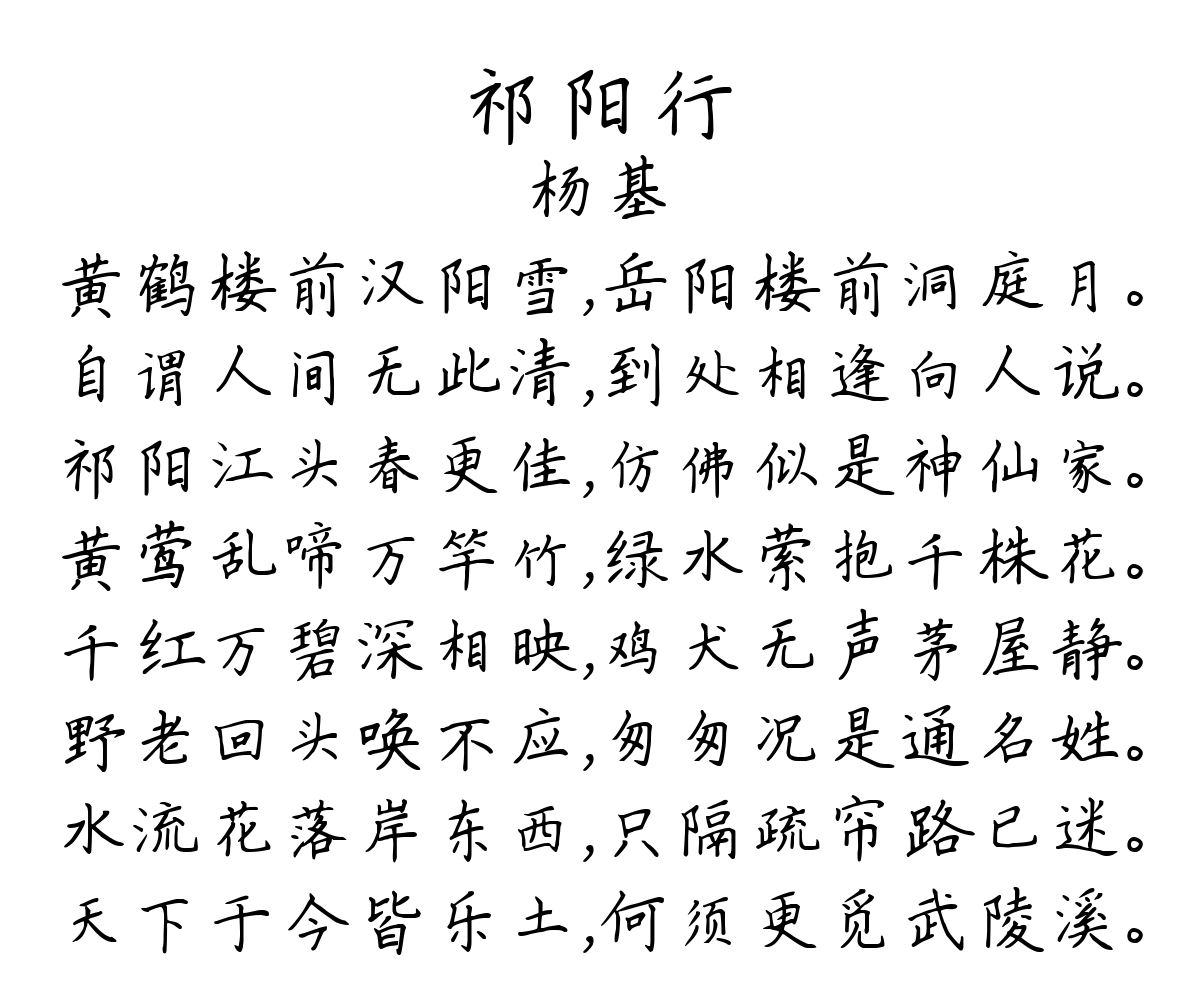 祁阳行
杨基
黄鹤楼前汉阳雪,岳阳楼前洞庭月。
自谓人间无此清,到处相逢向人说。
祁阳江头春更佳,仿佛似是神仙家。
黄莺乱啼万竿竹,绿水萦抱千株花。
千红万碧深相映,鸡犬无声茅屋静。
野老回头唤不应,匆匆况是通名姓。
水流花落岸东西,只隔疏帘路已迷。
天下于今皆乐土,何须更觅武陵溪。